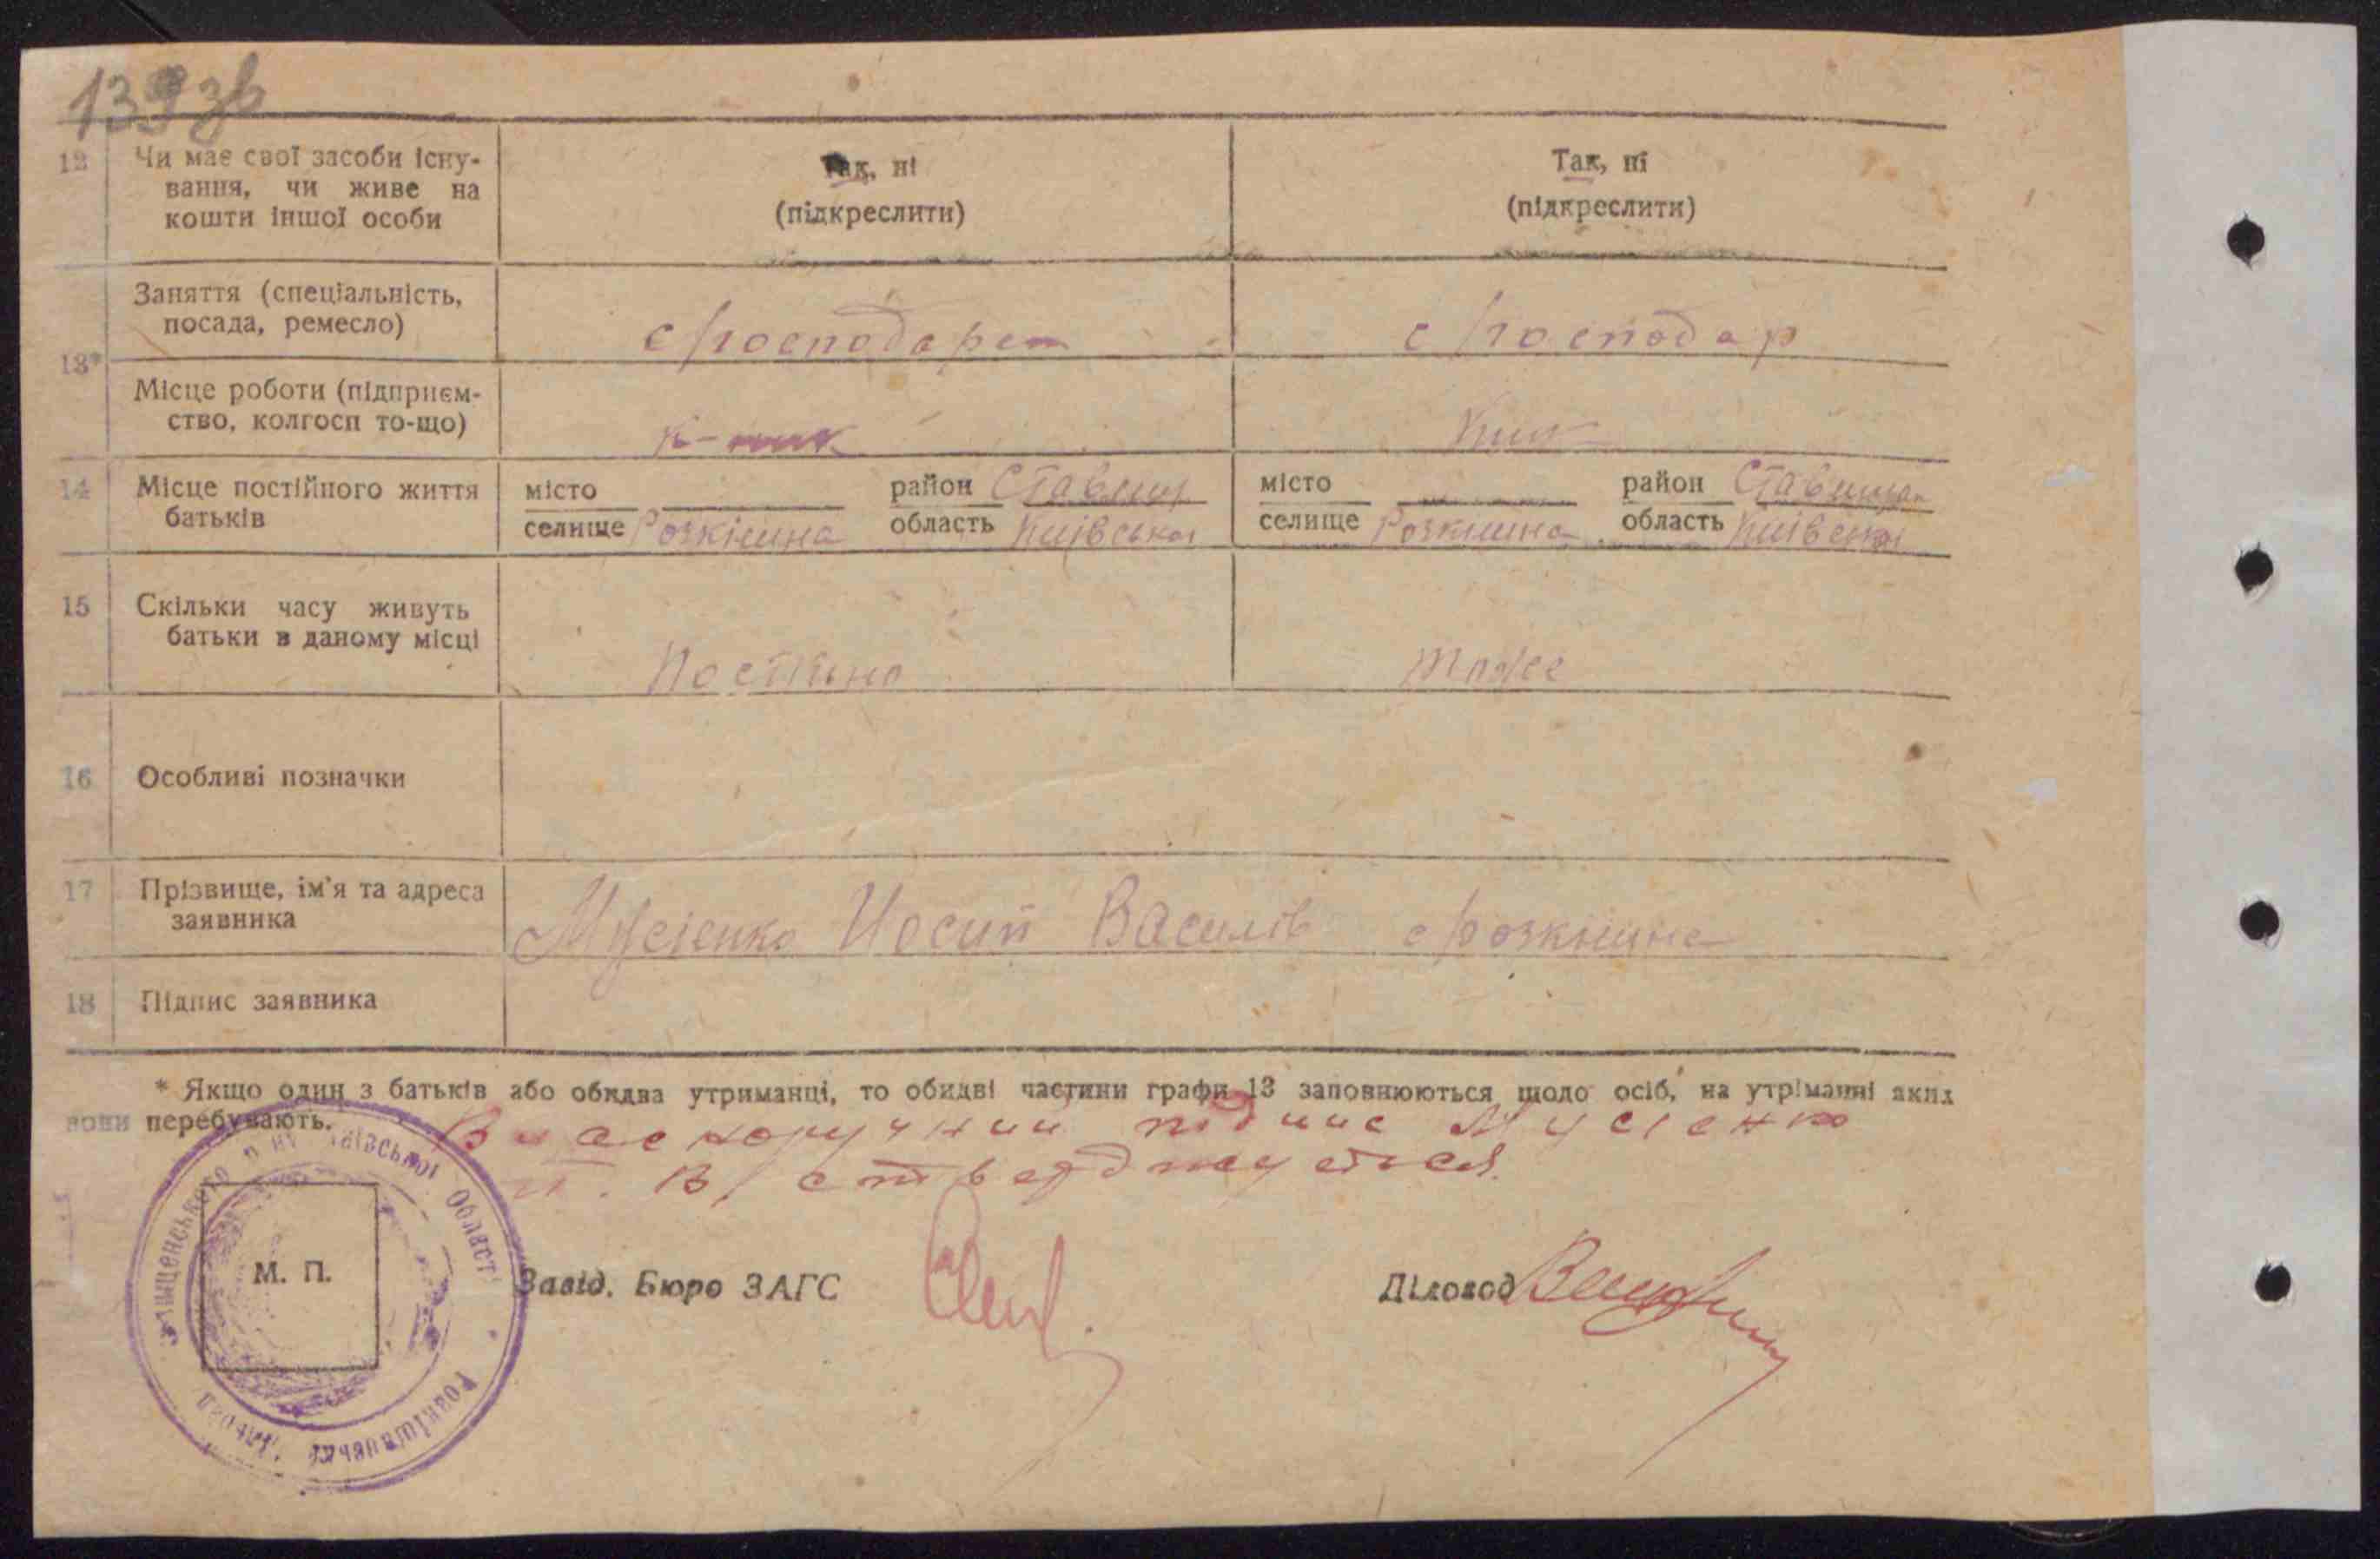 139зв
12 Чи має свої засоби існу-
вання, чи живе на
кошти іншої особи
Так, ні
(підкреслити)
Так, ні
(підкреслити)
13*
Заняття (спеціальність,
посада, ремесло)
с/господар
Місце роботи (підприєм-
ство, колгосп то-що)
к-ник
14 Місце постійного життя
батьків
місто район Ставищ
селище Розкішна область Київська
місто район Ставищан
селище Розкішна область Київська
15 Скільки часу живуть
батьки в даному місці
Постійно
тоже
16 Особливі позначки
17 Прізвище, ім'я та адреса
заявника
Мусієнко Йосип Василів с Розкішна
18 Підпис заявника
* Якщо один з батьків або обидва утриманці, то обидві частини графи 13 заповнюються щодо осіб, на утриманні яких
вони перебувають.
Власноручний підпис Мусієнко
Й. В. стверджується.
М. П.
Завід. Бюро ЗАГС
Діловод